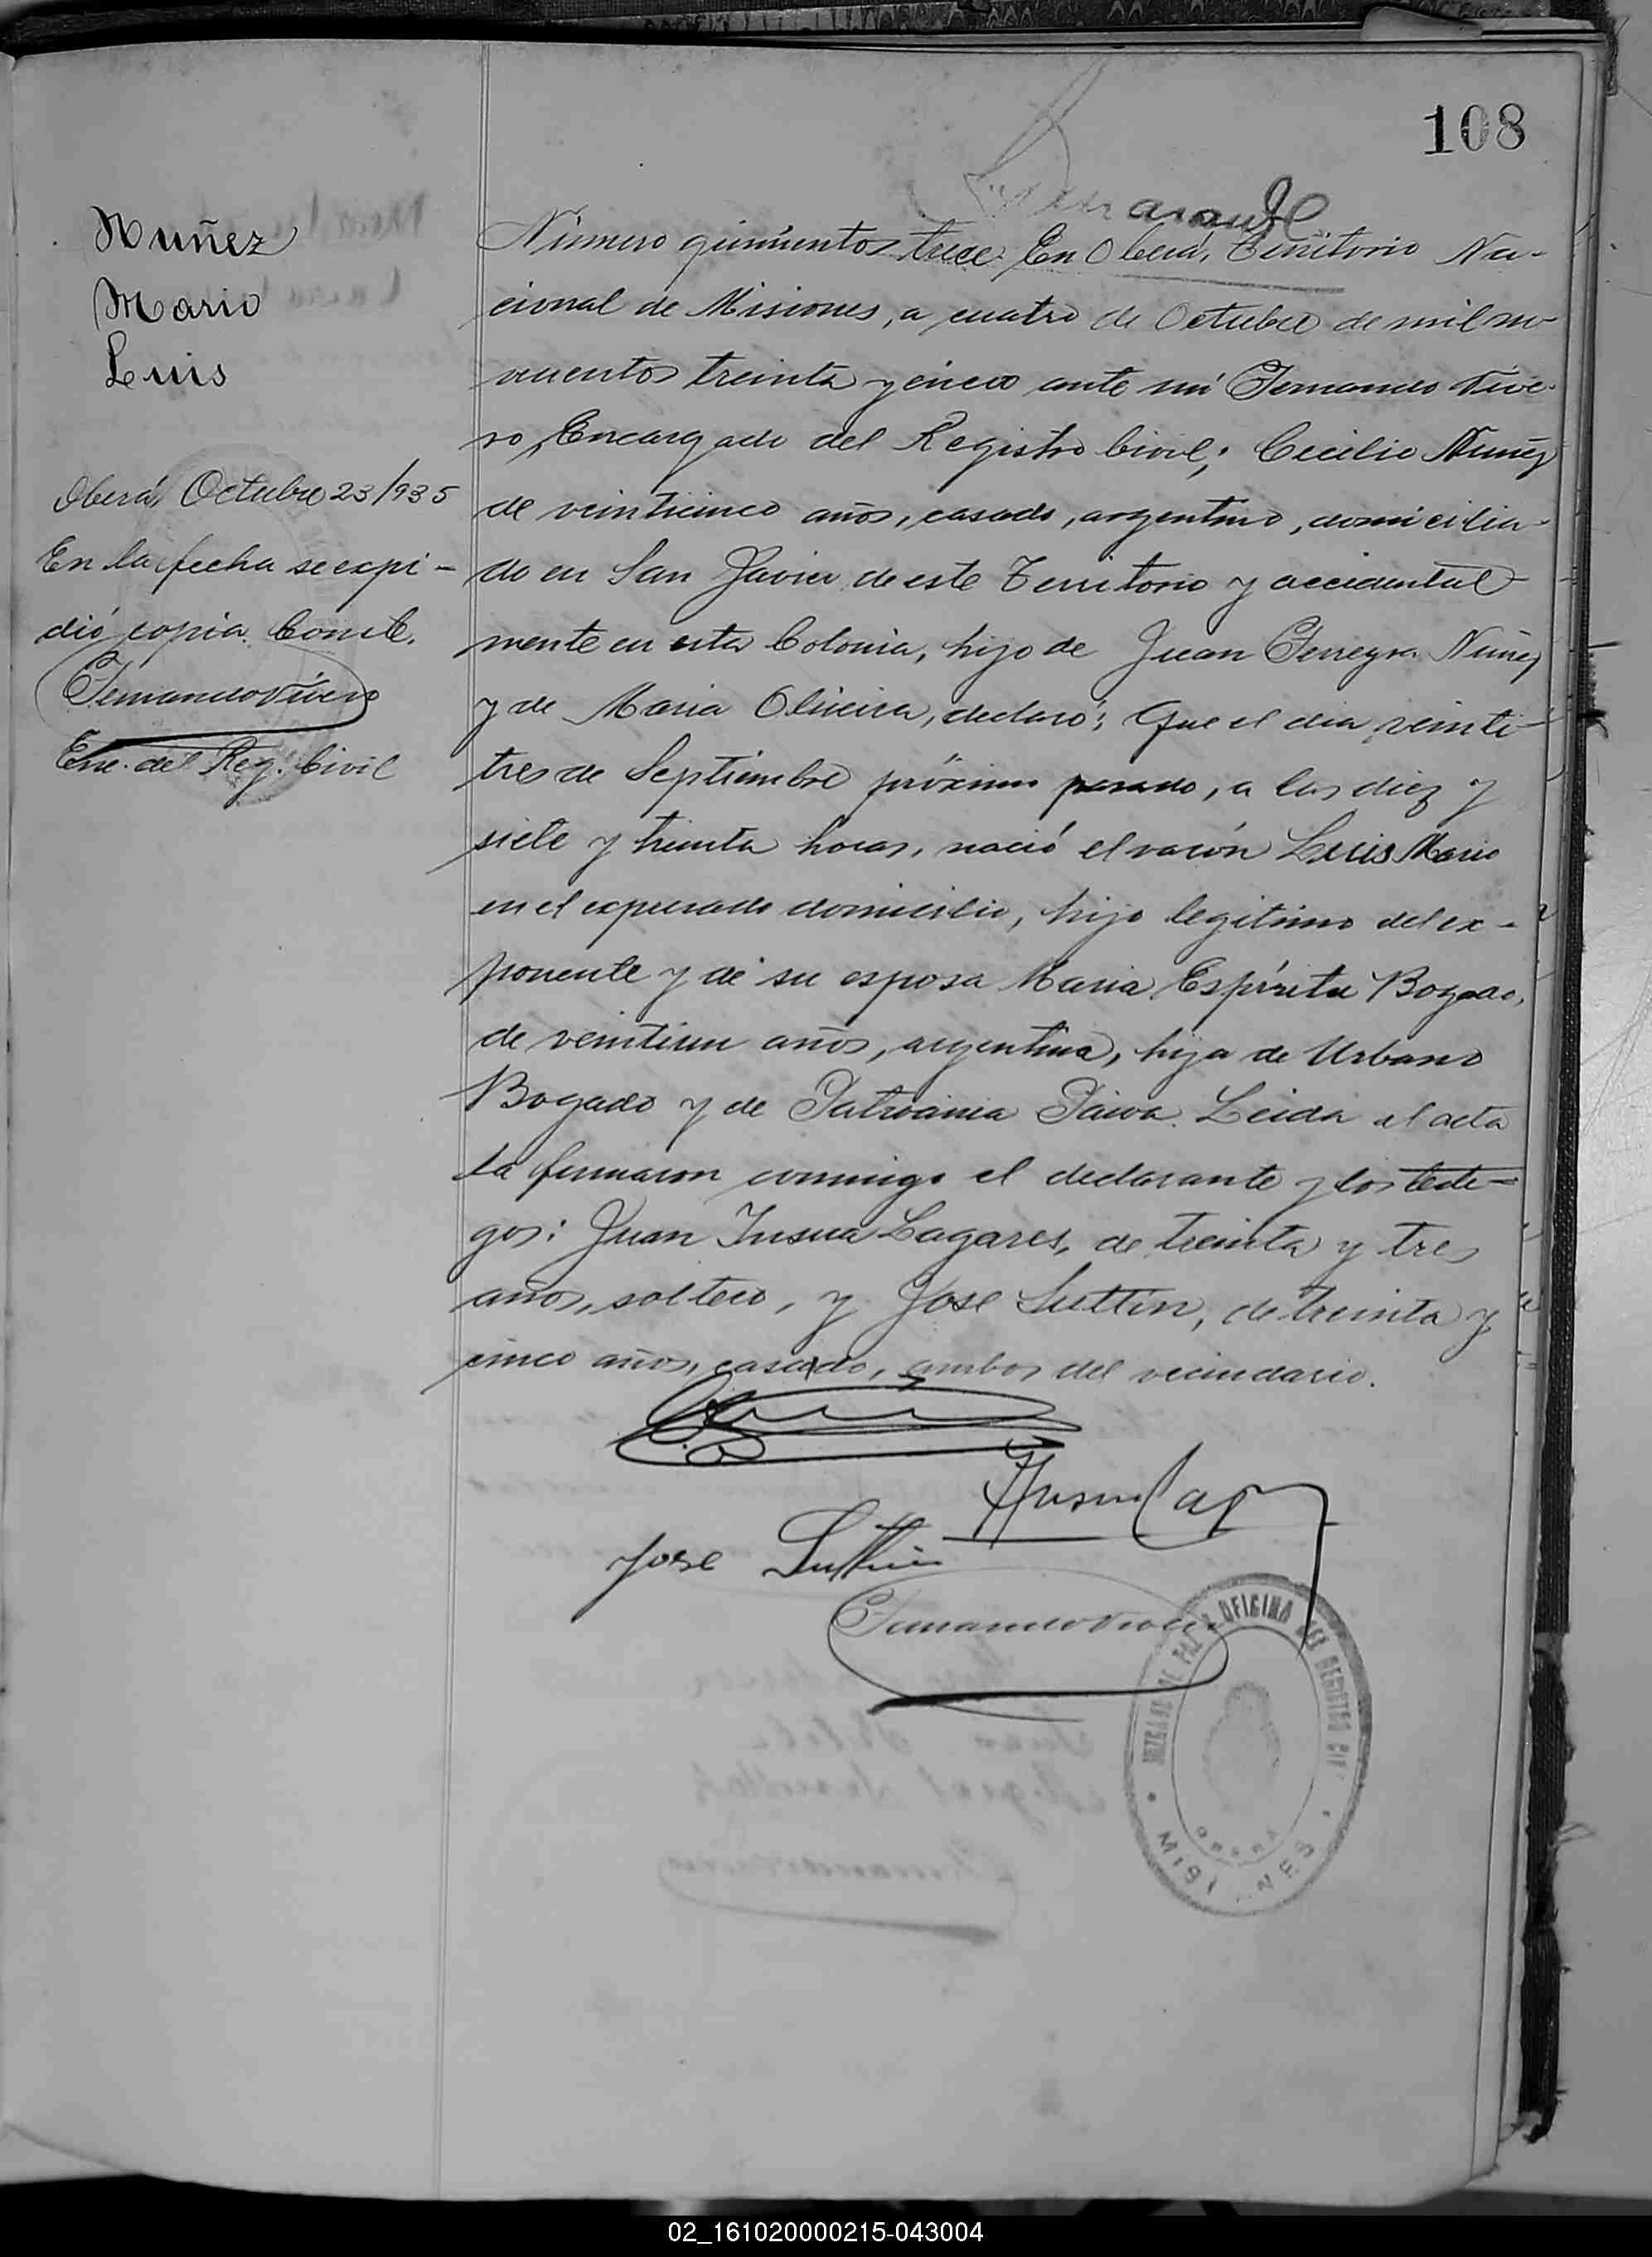 108
Nuñez
Mario
Luis
Oberá, Octubre 23/935
En la fecha se expi-
dió copia. Conste.
Fernando Vivero
Enc. del Reg. Civil
Número quinientos trece. En Oberá, Territorio Na-
cional de Misiones, a cuatro de Octubre de mil no-
vecientos treinta y cinco ante mí Fernando Vive-
ro, Encargado del Registro Civil; Cecilio Nuñez
de veinticinco años, casado, argentino, domicilia-
do en San Javier de este Territorio y accidental
mente en esta Colonia, hijo de Juan Ferreyra Nuñez
y de Maria Oliveira, declaró: Que el dia veinti-
tres de Septiembre próximo pasado, a las diez y
siete y treinta horas, nació el varón Luis Mario
en el expresado domicilio, hijo legítimo del ex-
ponente y de su esposa Maria Espírita Bogado,
de veintiun años, argentina, hija de Urbano
Bogado y de Paiva. Leida el acta
la firmaron conmigo el declarante y los testi-
gos: Juan Insua Lagares, de treinta y tres
años, soltero, y José Suttin, de treinta y
cinco años, casado, ambos del vecindario.
Jose Suttin
Fernando Vivero
JUZGADO DE PAZ Y OFICINA DEL REGISTRO CIV
OBERÁ
MISI NES
02_161020000215-043004